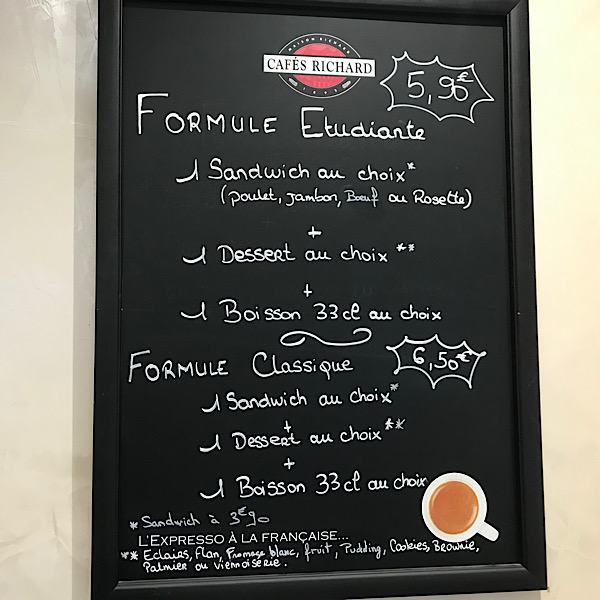 MAISON RICHARD
CAFÉS RICHARD
1892
5,90€
FORMULE Etudiante
1 Sandwich au choix*
(poulet, jambon, Boeuf ou Rosette)
+
1 Dessert au choix **
+
1 Boisson 33cl au choix
FORMULE Classique
6,50€
1 Sandwich au choix*
+
1 Dessert au choix**
+
1 Boisson 33cl au choix
* Sandwich à 3€90
L'EXPRESSO À LA FRANÇAISE...
** Eclairs, Flan, Fromage blanc, fruit, Pudding, Cookies, Brownie,
Palmier ou viennoiserie.